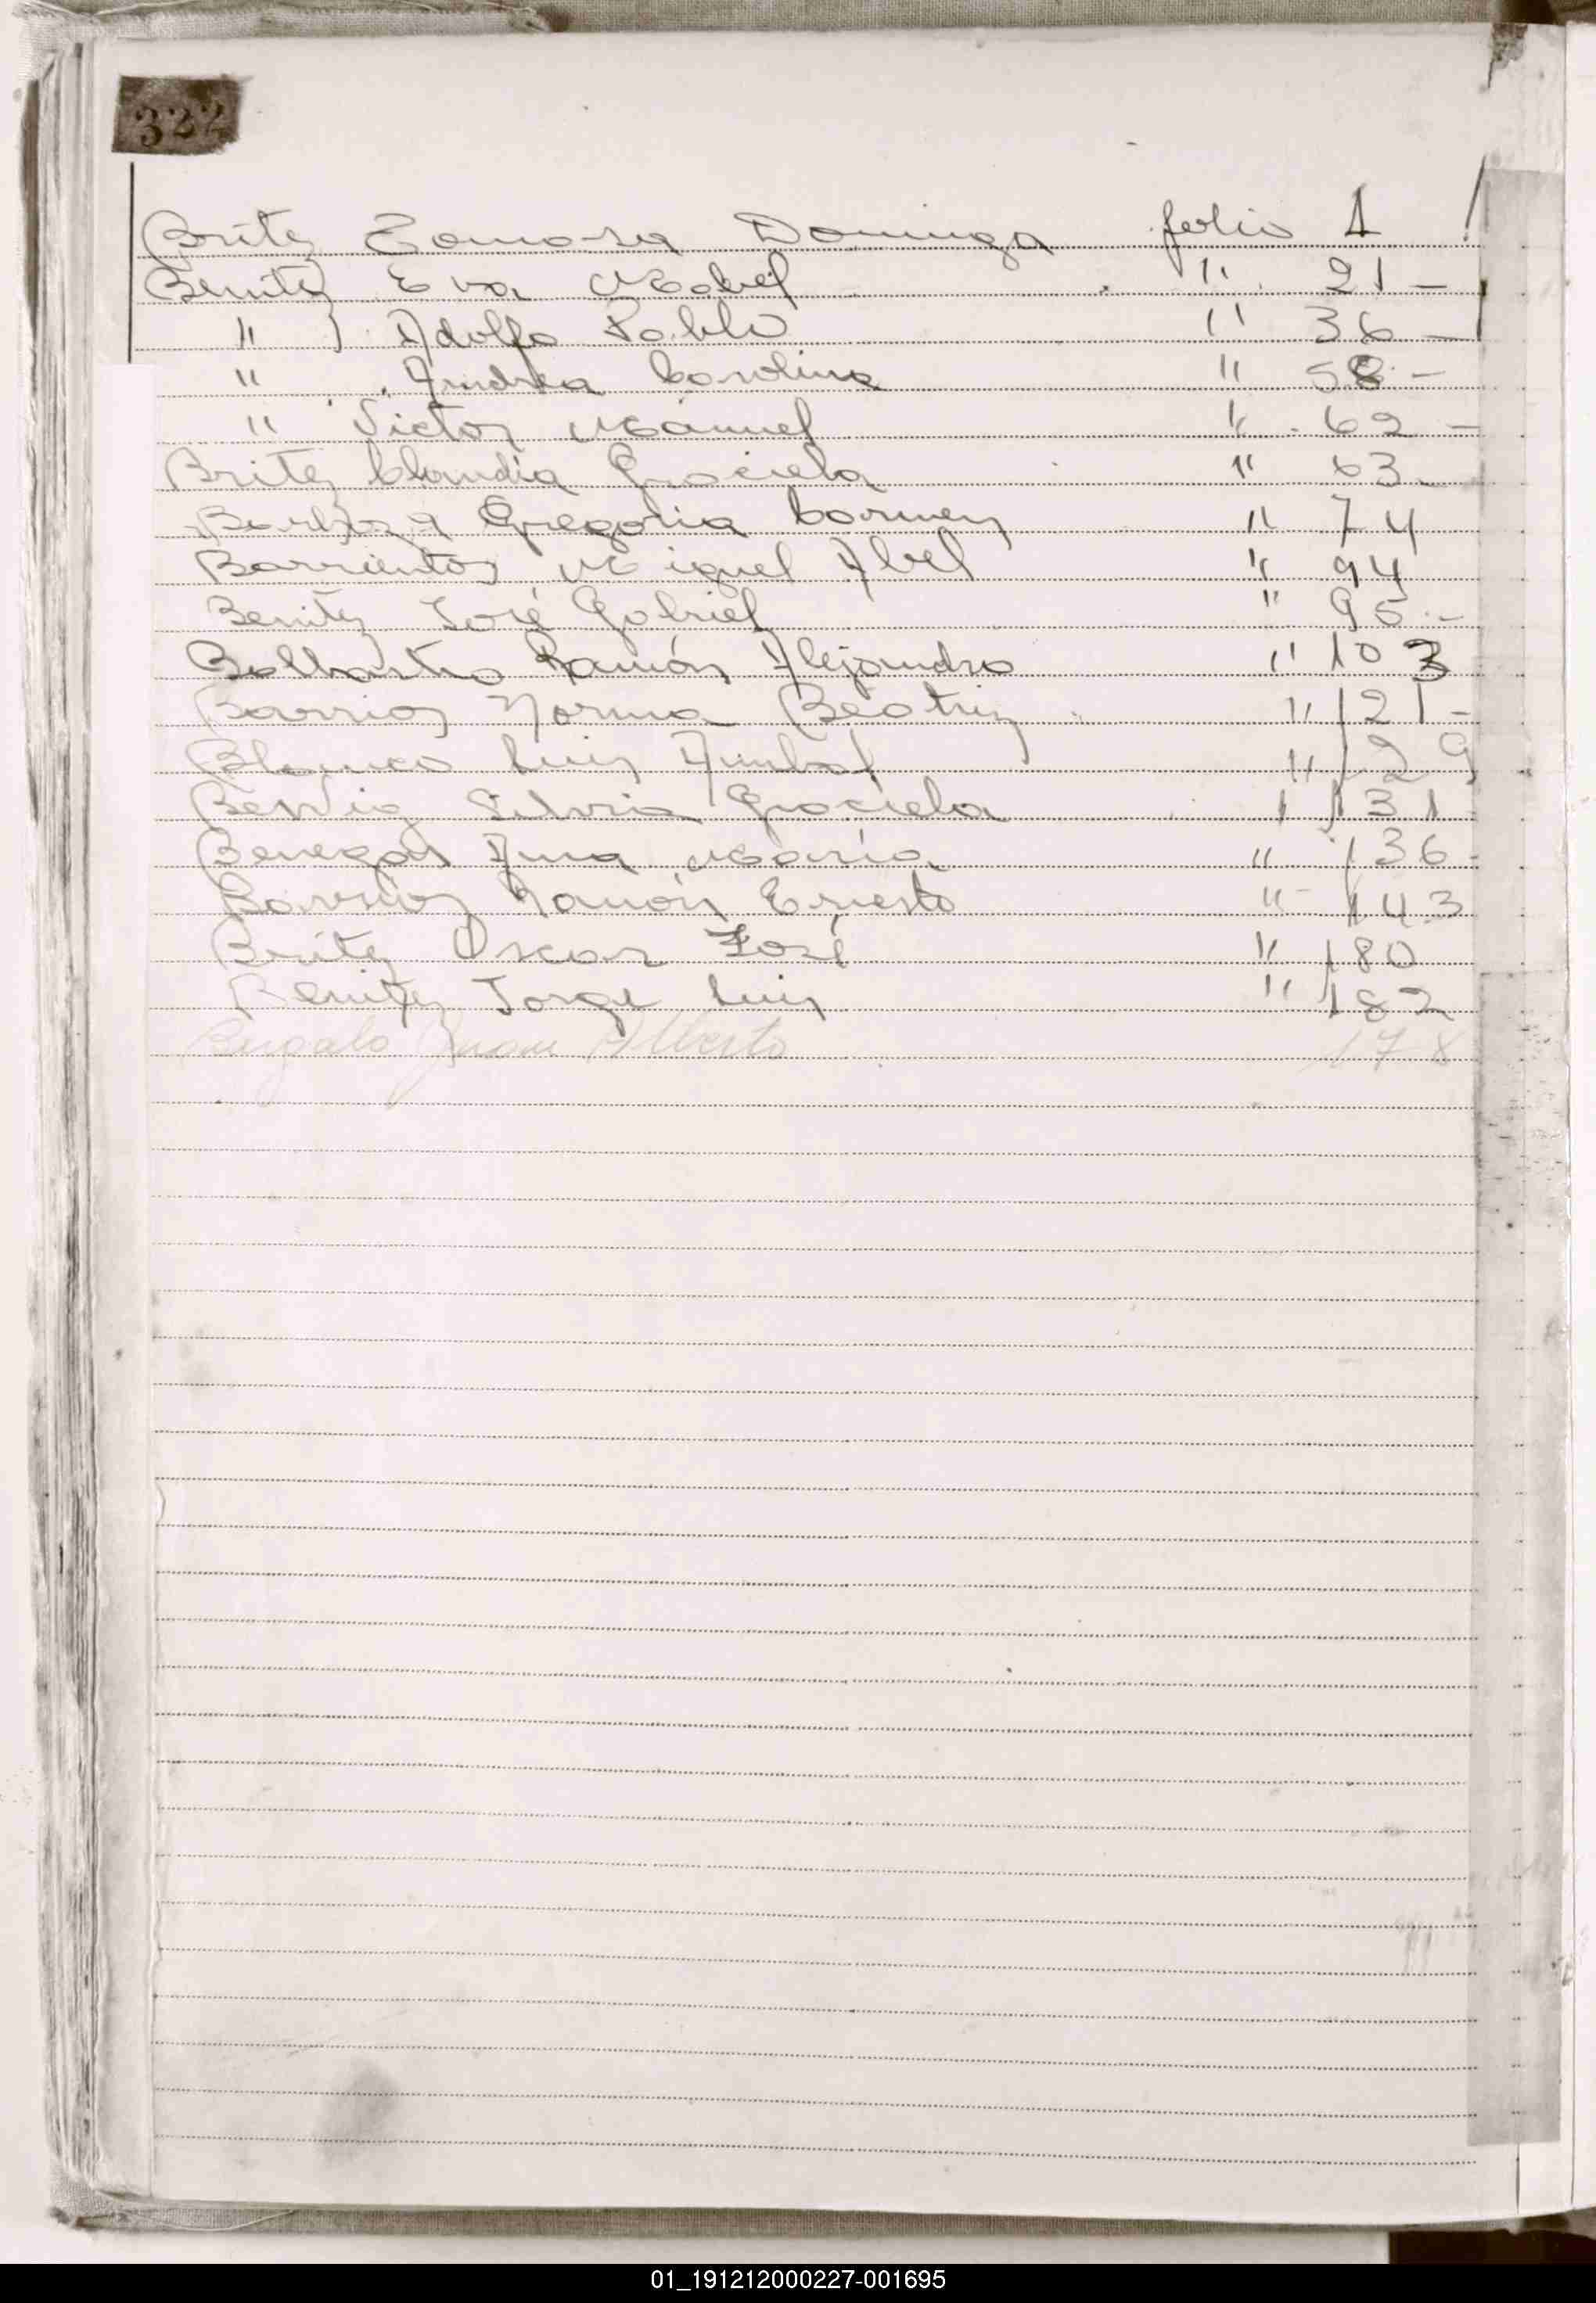 322
Britez Tomasa Dominga folio 1
Benitez Eva Mabel " 21 -
" Adolfo Pablo " 36 -
" Andrea Carolina " 58 -
" Victor Manuel " 62 -
Britez Claudia Graciela " 63 -
Barboza Gregoria Carmen " 74
Barrientos Miguel Abel " 94
Benitez José Gabriel " 95 -
Ramón Alejandro " 103
Barrios Norma Beatriz " 121 -
Blanco Luis Anibal " 129
Silvia Graciela " 131
Benegas Ana María " 136 -
Barrios Ramón Ernesto " 143
Britez Oscar José " 180
Benitez Jorge Luis " 182
Juan Alberto 178
01_191212000227-001695